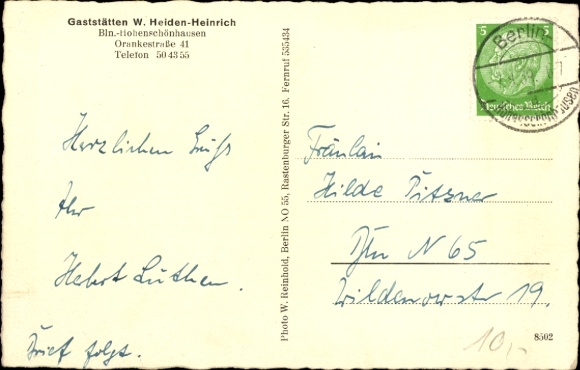 Gaststätten W. Heiden-Heinrich
Bln.-Hohenschönhausen
Orankestraße 41
Telefon 50 43 55
Herzlichen Gruß
Ihr
Herbert Luthen.
Brief folgt.
Photo W. Reinhold, Berlin NO 55, Rastenburger Str. 16. Fernruf 535434
5 5
Deutsches Reich
Berlin
Hohenschönhausen
Fräulein
Hilde Pitzner
Bln N 65
Wildenowstr 19.
10,-
8502